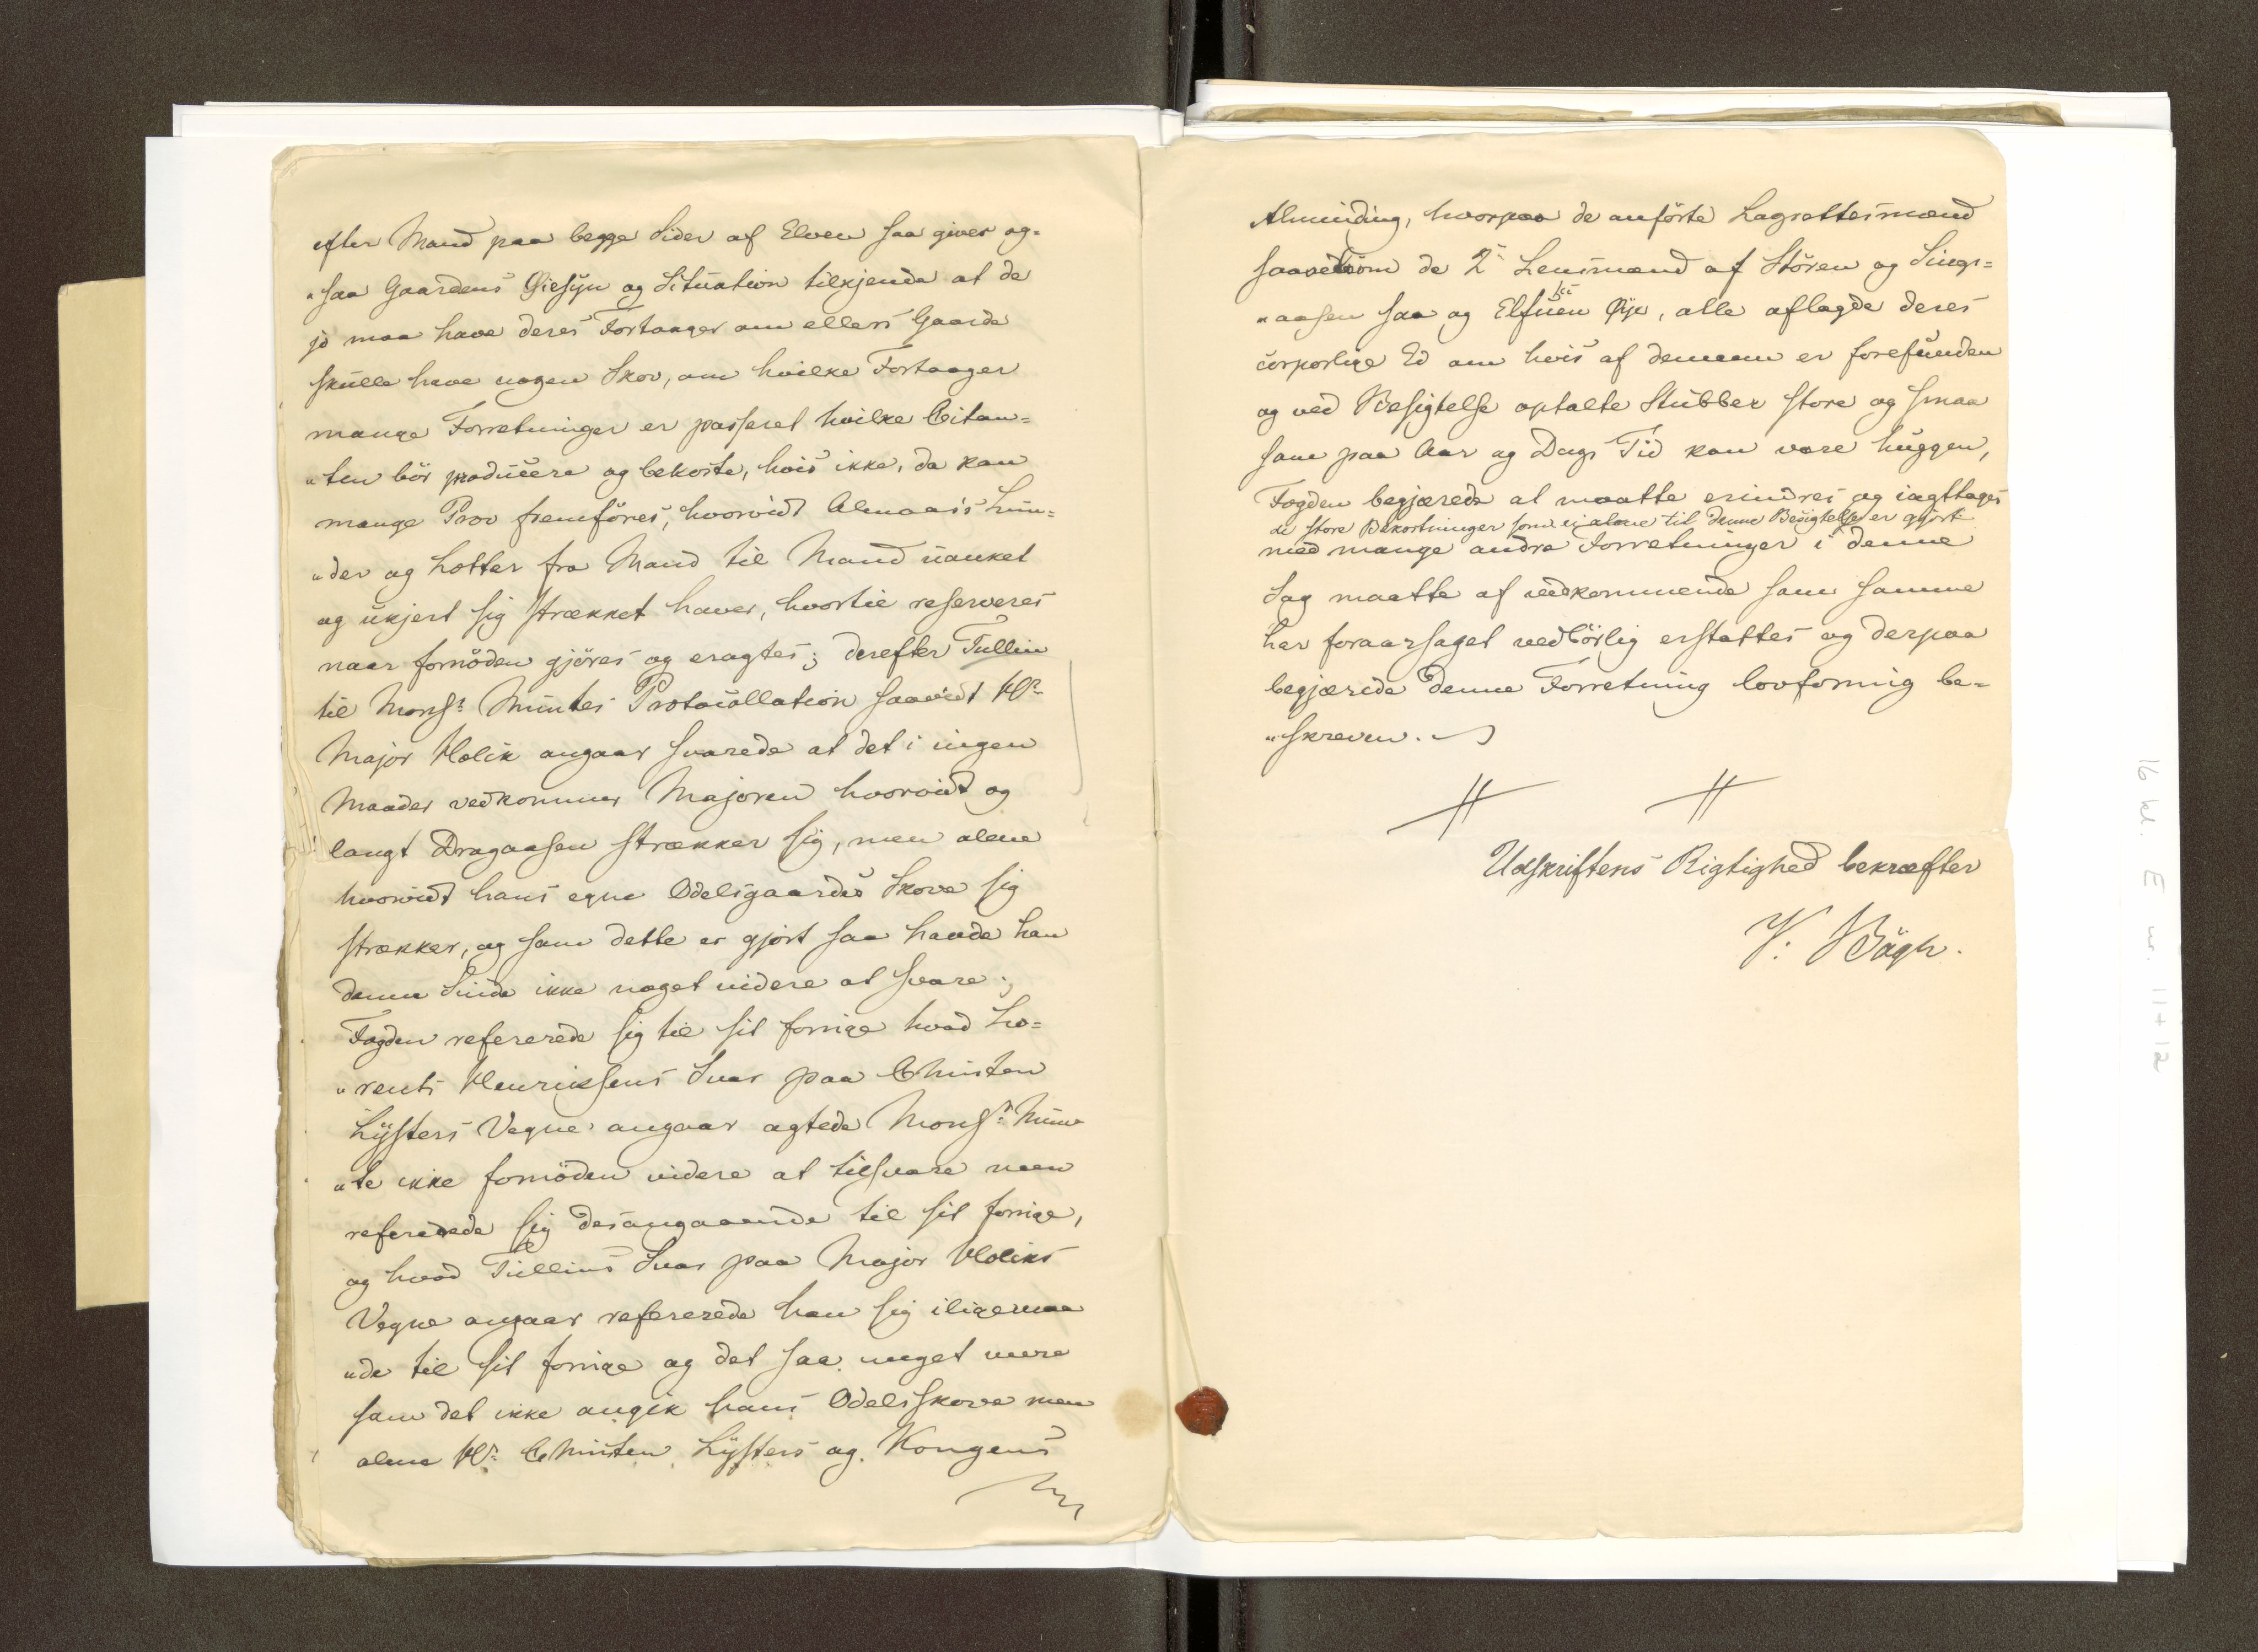 efter Mand paa begge Sider af Elven saa giver og=
"saa Gaardens Øiesyn og Situation tilkjende at de
jo maa have deres Fortaager om ellers Gaarde
skulle have nogen Skov, om hvilke Fortaager
mange Forretninger er passeret hvilke Citan=
"ten bör producere og bekoste, hvis ikke, da kan
mange Prov fremföres, hvorvidt Almaas's Lun=
"der og Lotter fra Mand til Mand uanket
og ukjert sig strækket haver, hvortil reserveres
naar fornöden gjöres og eragtes; derefter Tullin
til Monsr Muntes Protocollation saavidt Hr
Major Holik angaar svarede at det i ingen
Maader vedkommer Majoren hvorvidt og
langt Dragaasen strækker sig, men alene
hvorvidt hans egne Odelsgaardes Skove sig
strækker, og som dette er gjort saa havde han
denne Sinde ikke noget videre at svare;
Fogden refererede sig til sit forrige hvad Lo=
"rents Henriksens Svar paa Christen
Lysters Vegne angaar agtede Monsr: Mun
"te ikke fornöden videre at tilsvare men
refererede sig desangaaende til sit forrige,
og hvad Tullins Svar paa Major Holiks
Vegne angaar refererede han sig iligemaa
"de til sit forrige og det saa meget mere
som det ikke angik hans Odelsskove men
alene Hr: Christen Lysters og Kongens
Alminding, hvorpaa de anförte Lagrettesmænd
saavelsom de 2de Lensmænd af Stören og Sings=
"aasen saa og Elfuen Øye, alle aflagde deres
corporlige Ed om hvis af dennem er forefunden
og ved Besigtelse optalte Stubber store og smaa
som paa Aar og Dags Tid kan være huggen,
Fogden begjærede at maatte erindres og iagttages
de store Bekostninger som ej alene til denne Besigtelse er gjort
med mange andre Forretninger i denne
Sag maatte af vedkommende som samme
har foraarsaget vedbörlig erstattes og derpaa
begjærede denne Forretning lovforming be=
"skreven.
Udskriftens Rigtighed bekræfter
V: Bögh.
16 kl. E nr. 11+12